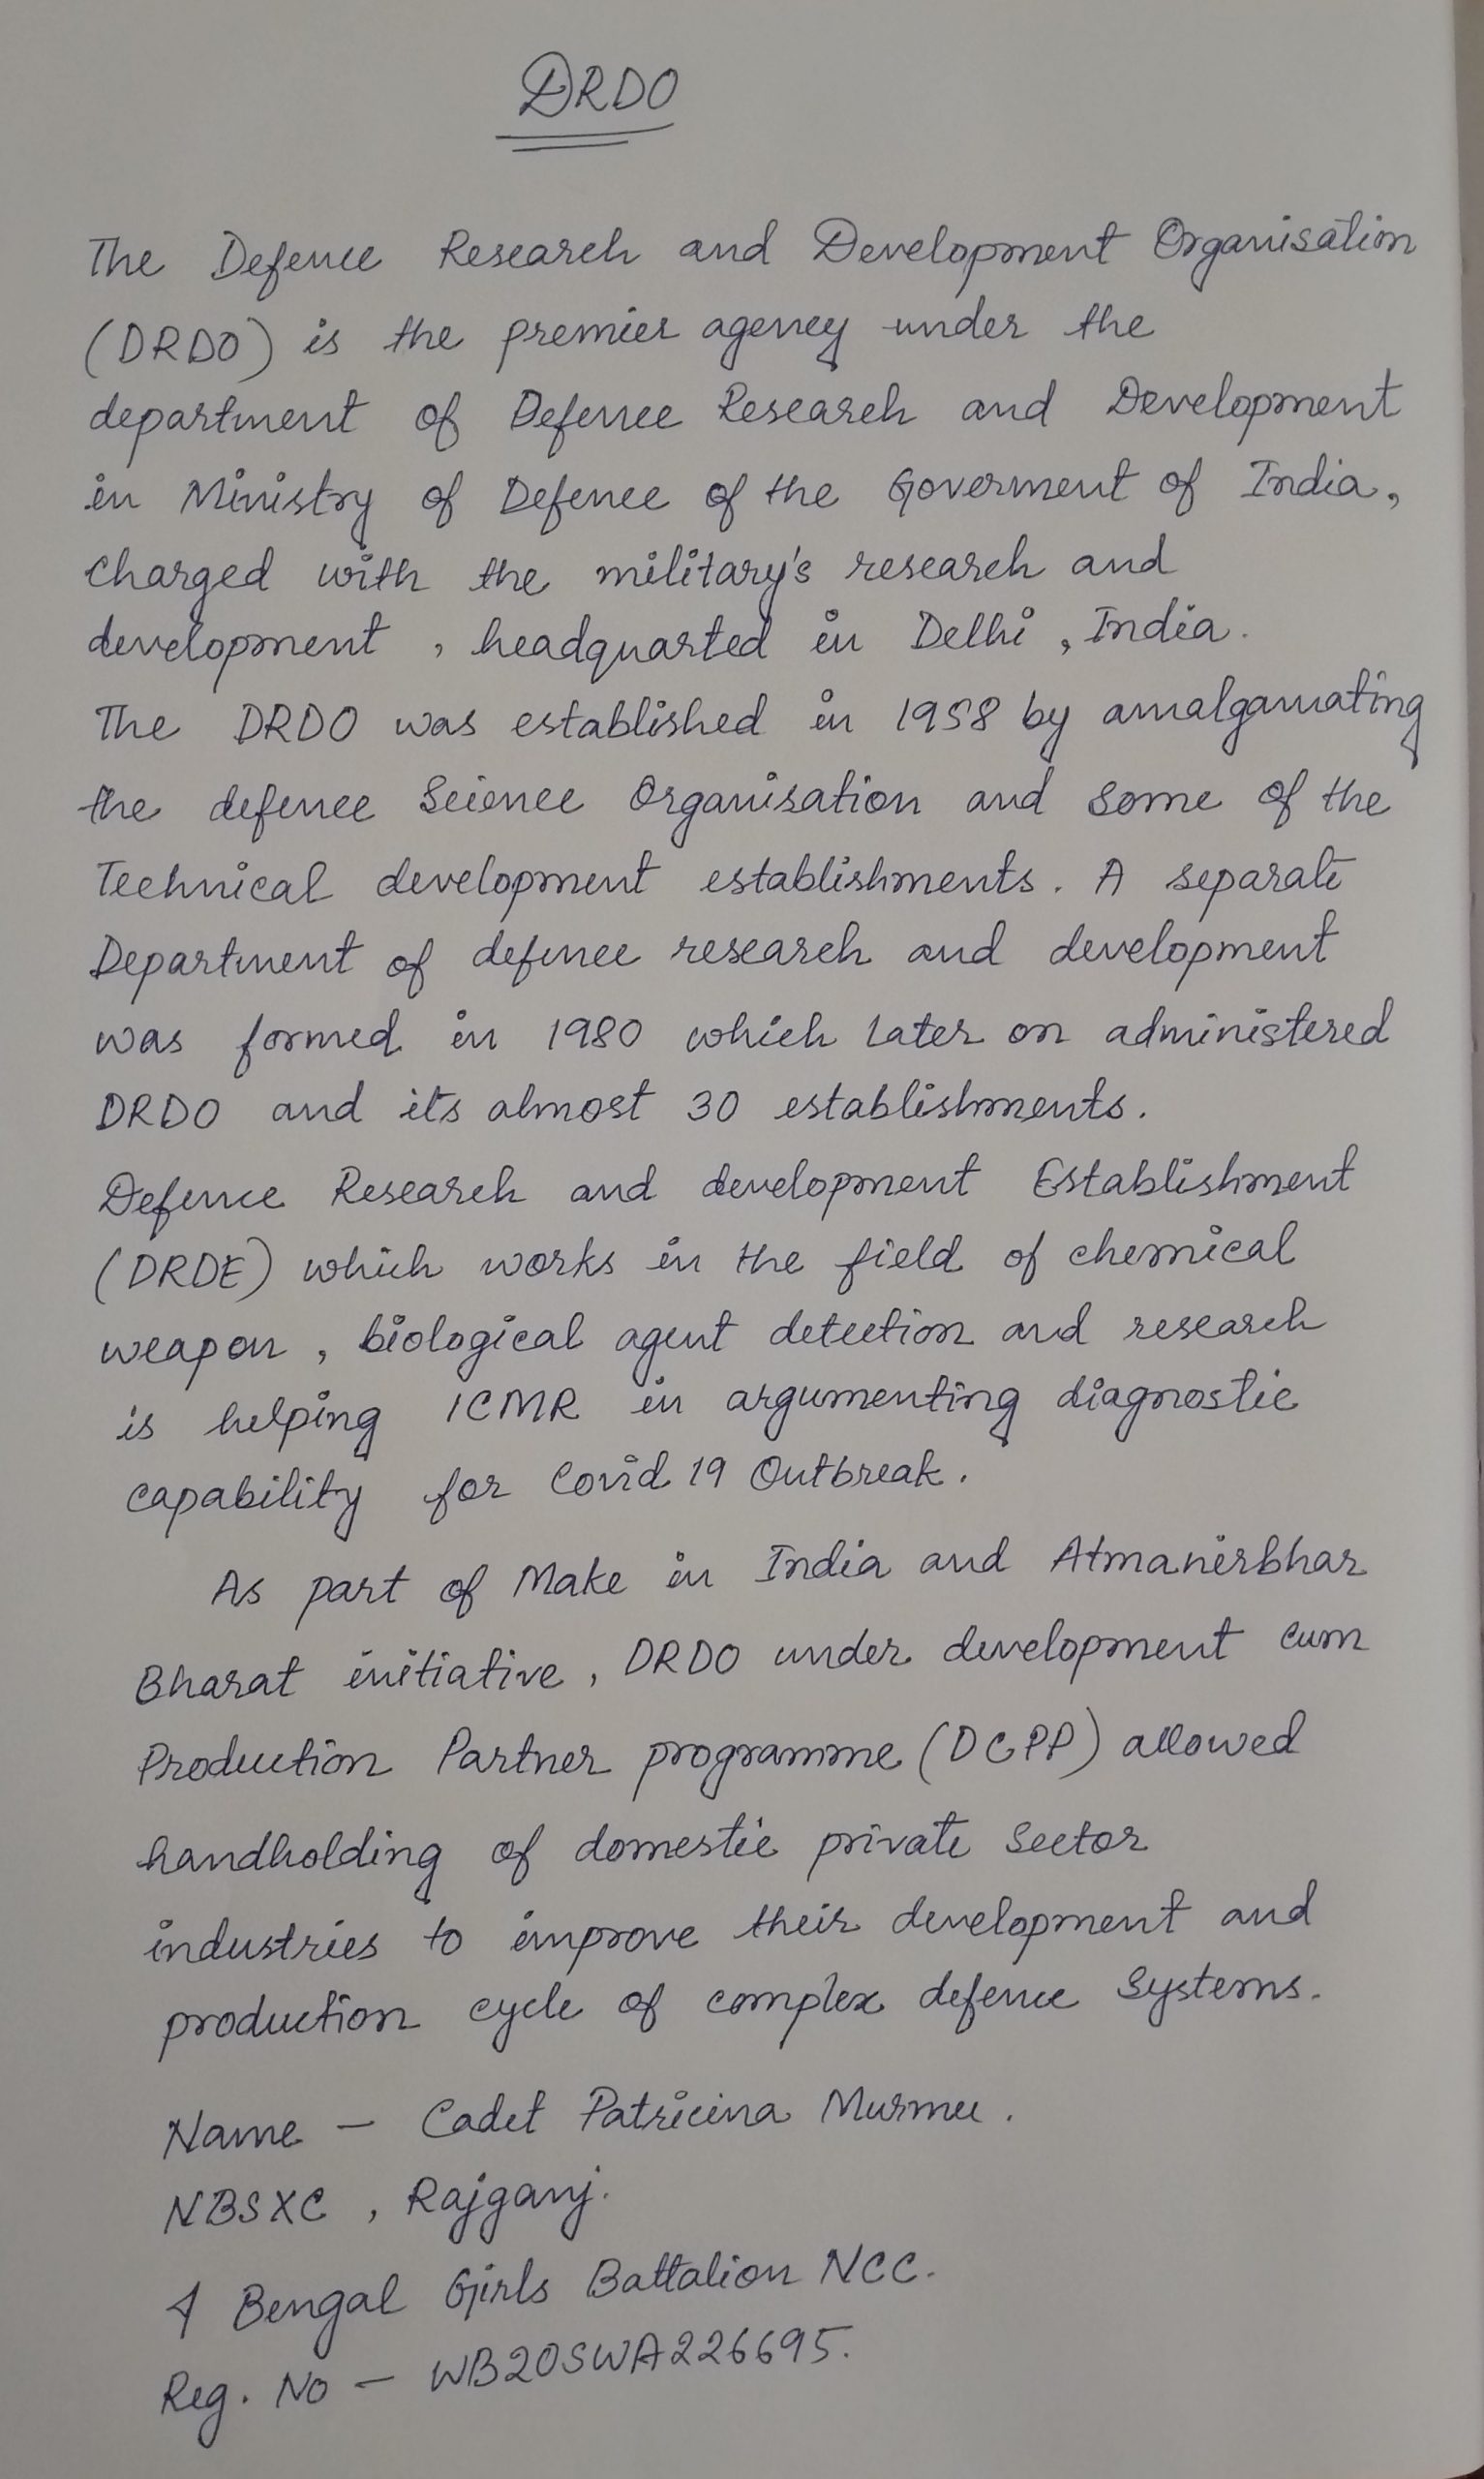 DRDO
The Defence Research and Development Organisation
(DRDO) is the premier agency under the
department of Defence Research and Development
in Ministry of Defence of the Goverment of India,
charged with the military's research and
development , headquarted in Delhi , India.
The DRDO was established in 1958 by amalgamating
the defence Science Organisation and some of the
Technical development establishments. A separate
Department of defence research and development
was formed in 1980 which later on administered
DRDO and its almost 30 establishments.
Defence Research and development Establishment
(DRDE) which works in the field of chemical
weapon , biological agent detection and research
is helping ICMR in argumenting diagnostic
capability for Covid 19 Outbreak.
As part of Make in India and Atmanirbhar
Bharat initiative , DRDO under development cum
Production Partner programme (DCPP) allowed
handholding of domestic private sector
industries to improve their development and
production cycle of complex defence systems.
Name - Cadet Patricina Murmu.
NBSXC , Rajganj.
4 Bengal Girls Battalion NCC.
Reg. No - WB20SWA226695.